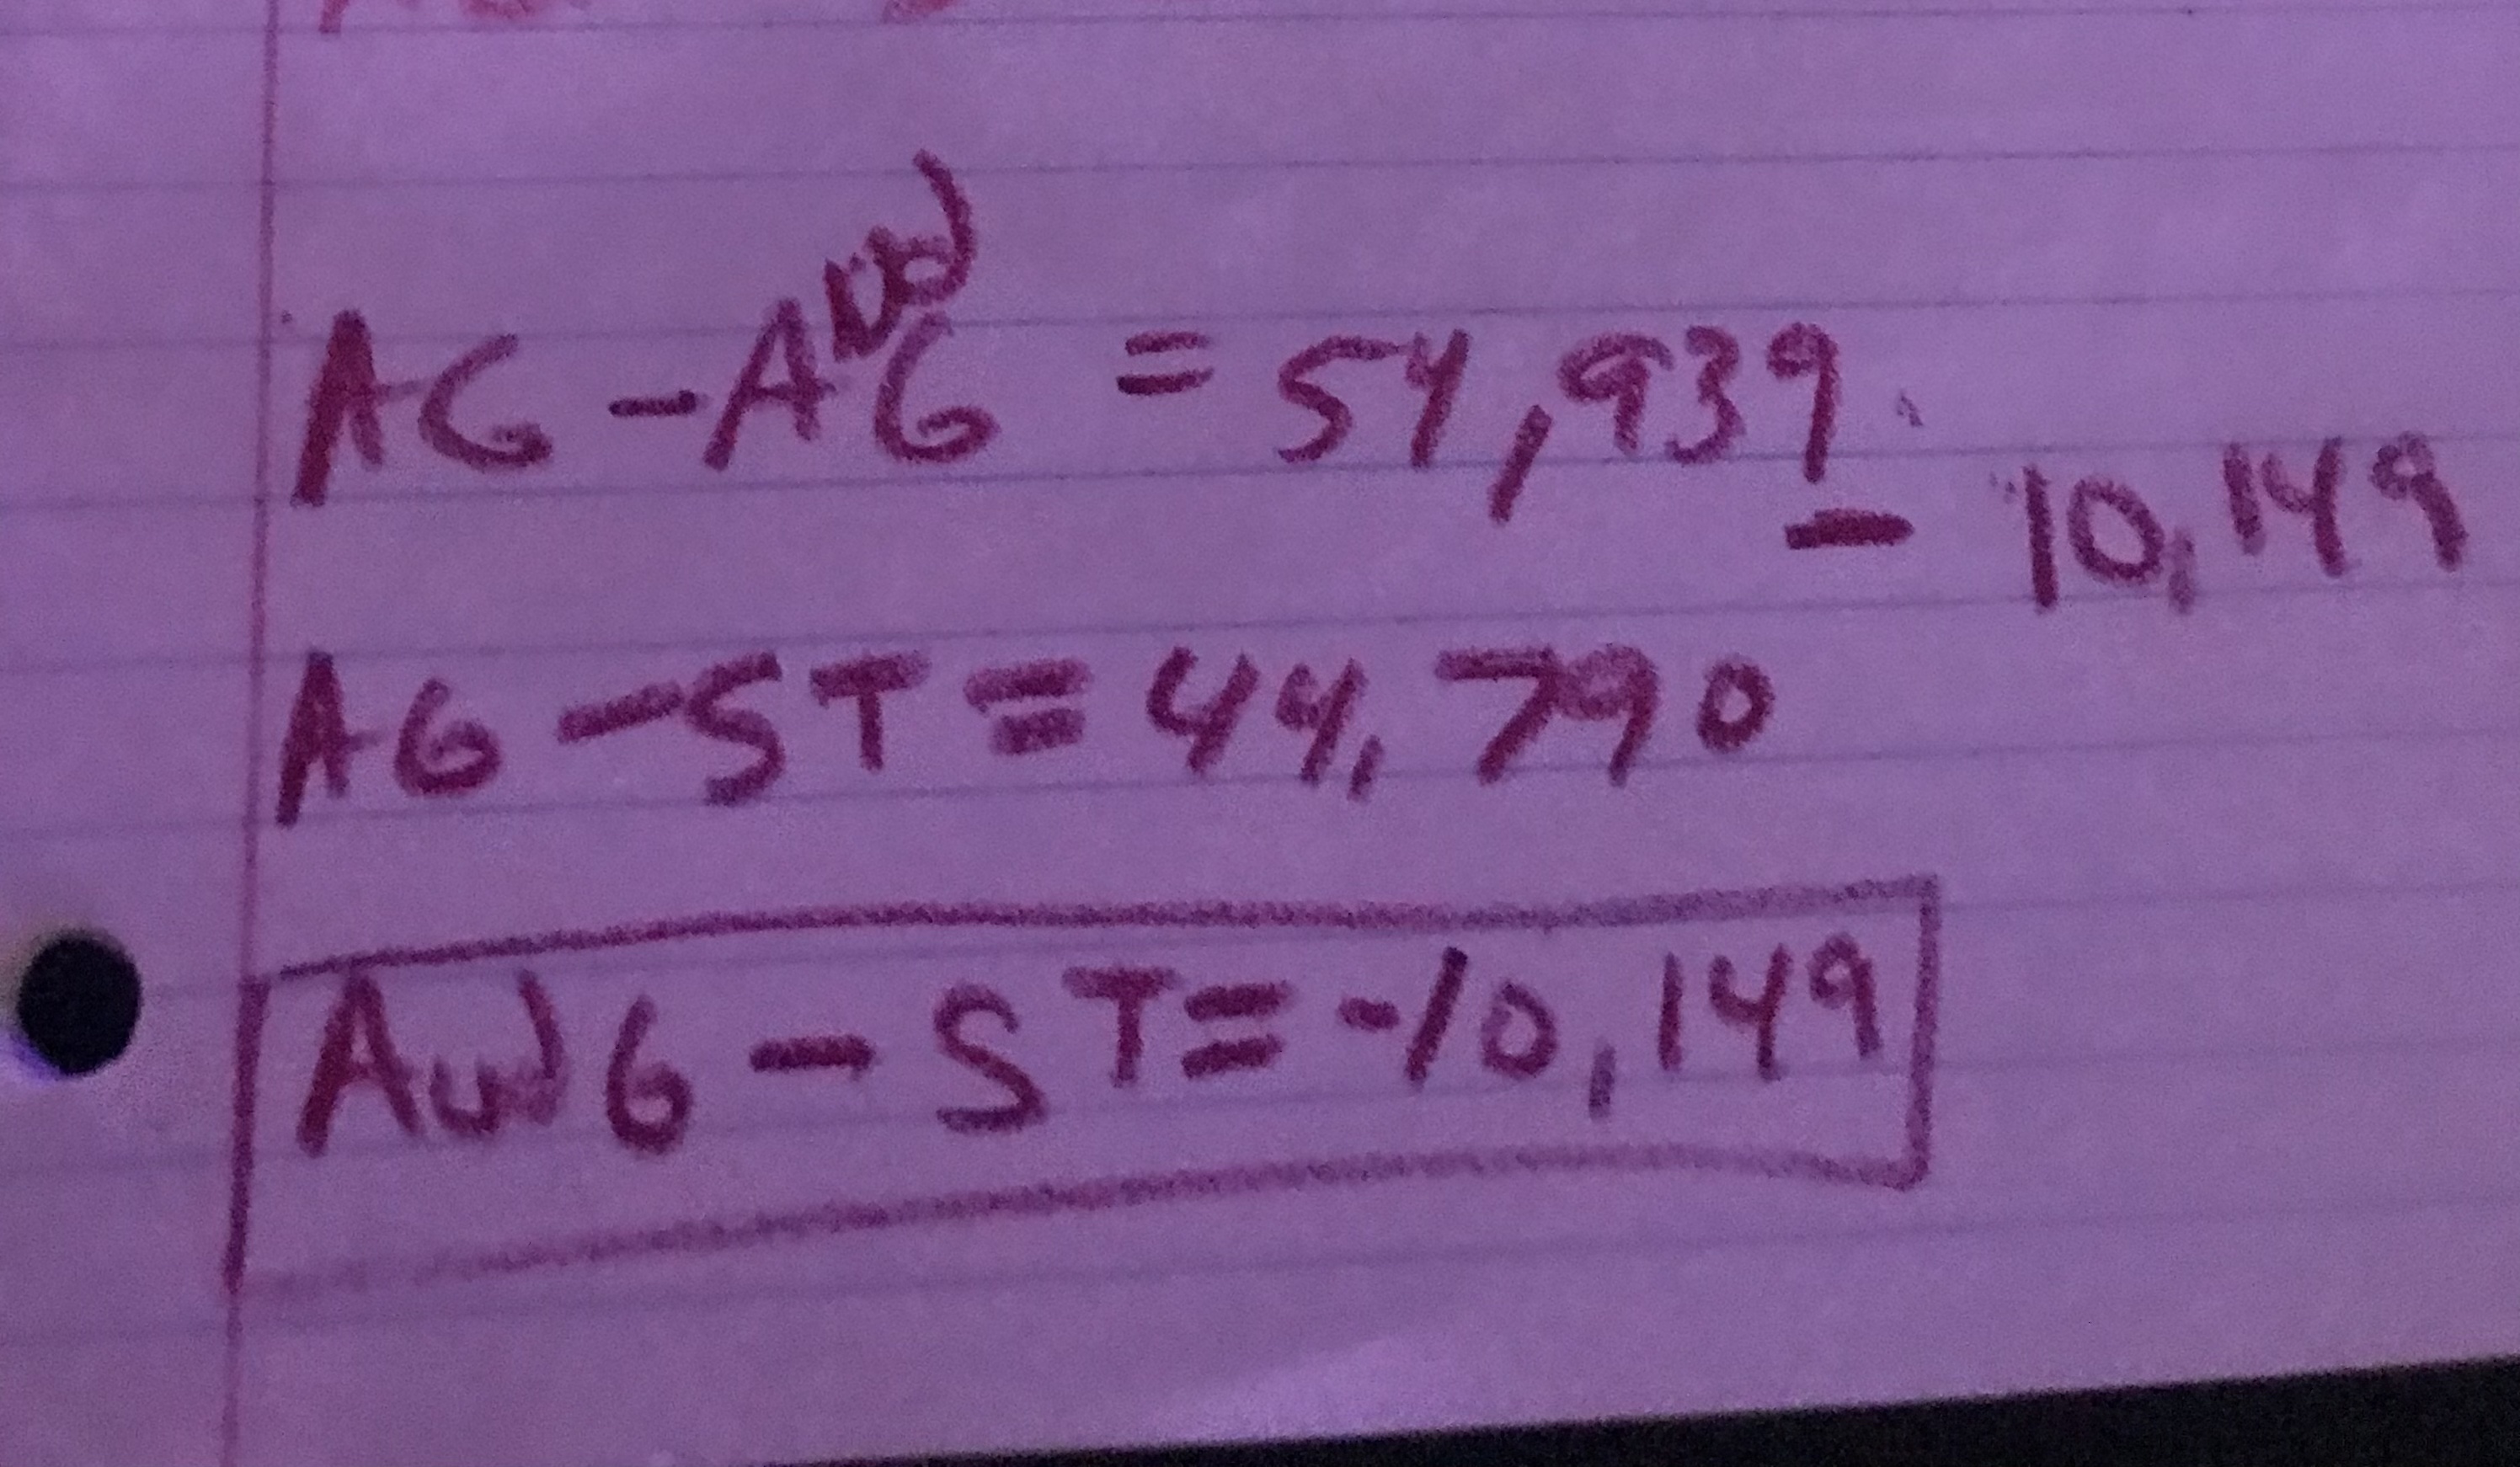 AG - AudG = 54,939
- 10,149
AG - ST = 44,790
AudG - ST = -10,149